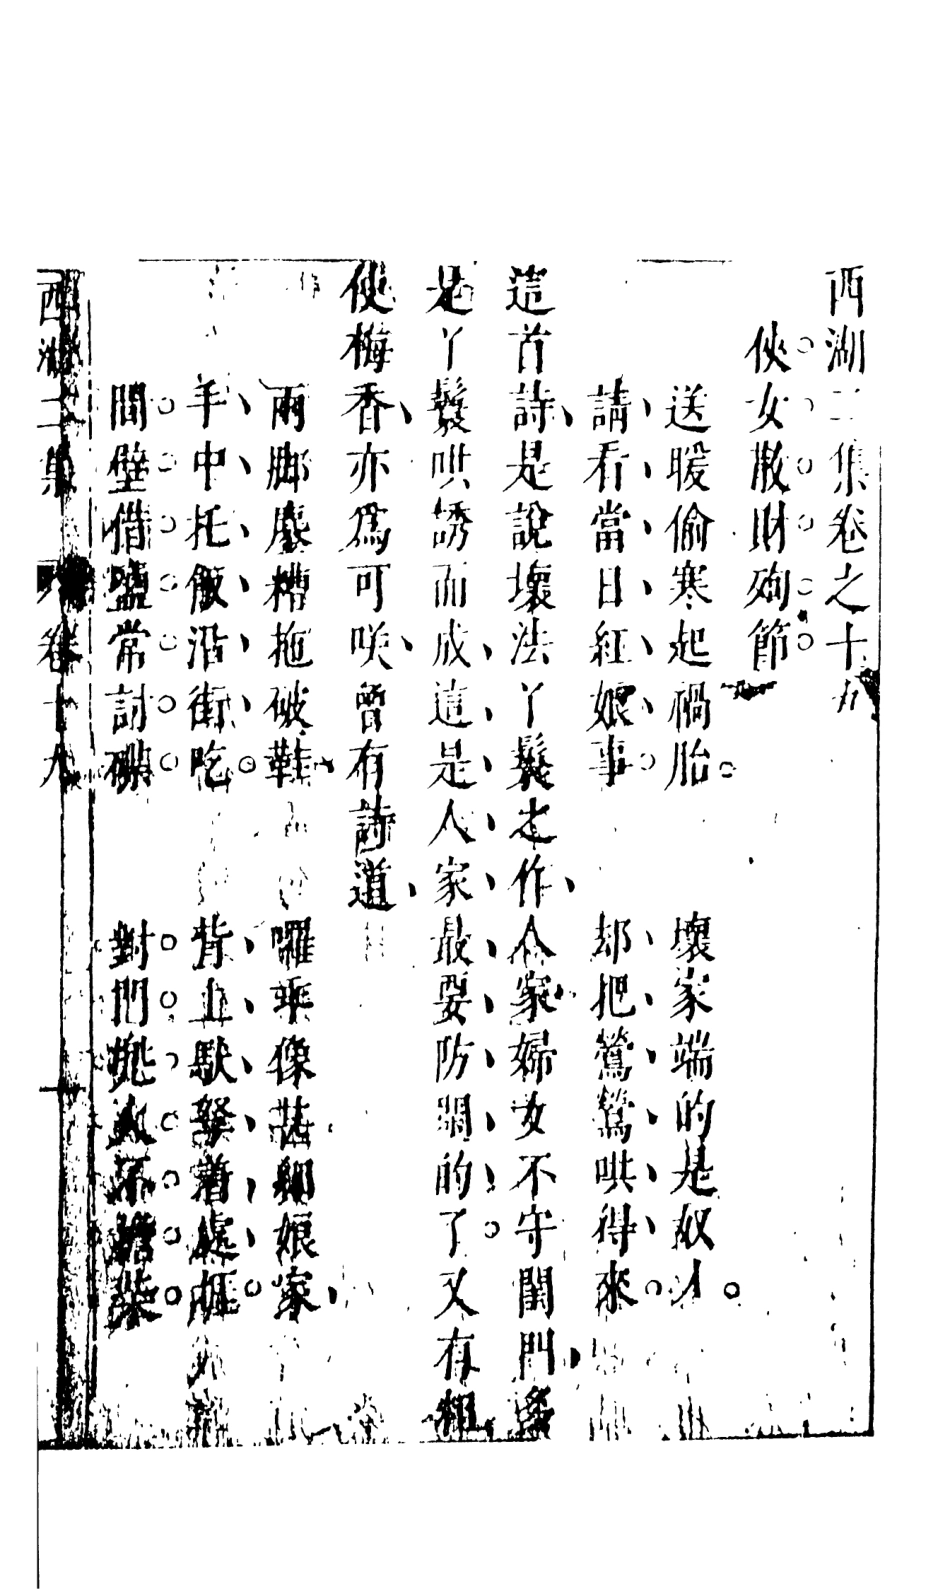 西湖二集卷之十
俠女散財殉節
送暖偷寒起禍胎　壞家端的是奴才
請看當日紅娘事　却把鶯鶯哄得來
這首詩是說壞法丫鬟之作人家婦女不守閨門多
是丫鬟哄誘而成這是人家最要防閑的了又有粗
使梅香亦爲可咲曾有詩道
兩脚麄糟拖破鞋　囉乖像甚細娘家
手中托飯沿街吃　背上馱拏着處捱
間壁借鹽常討碟　對門兜火不擔柴
西湖二集　卷十九